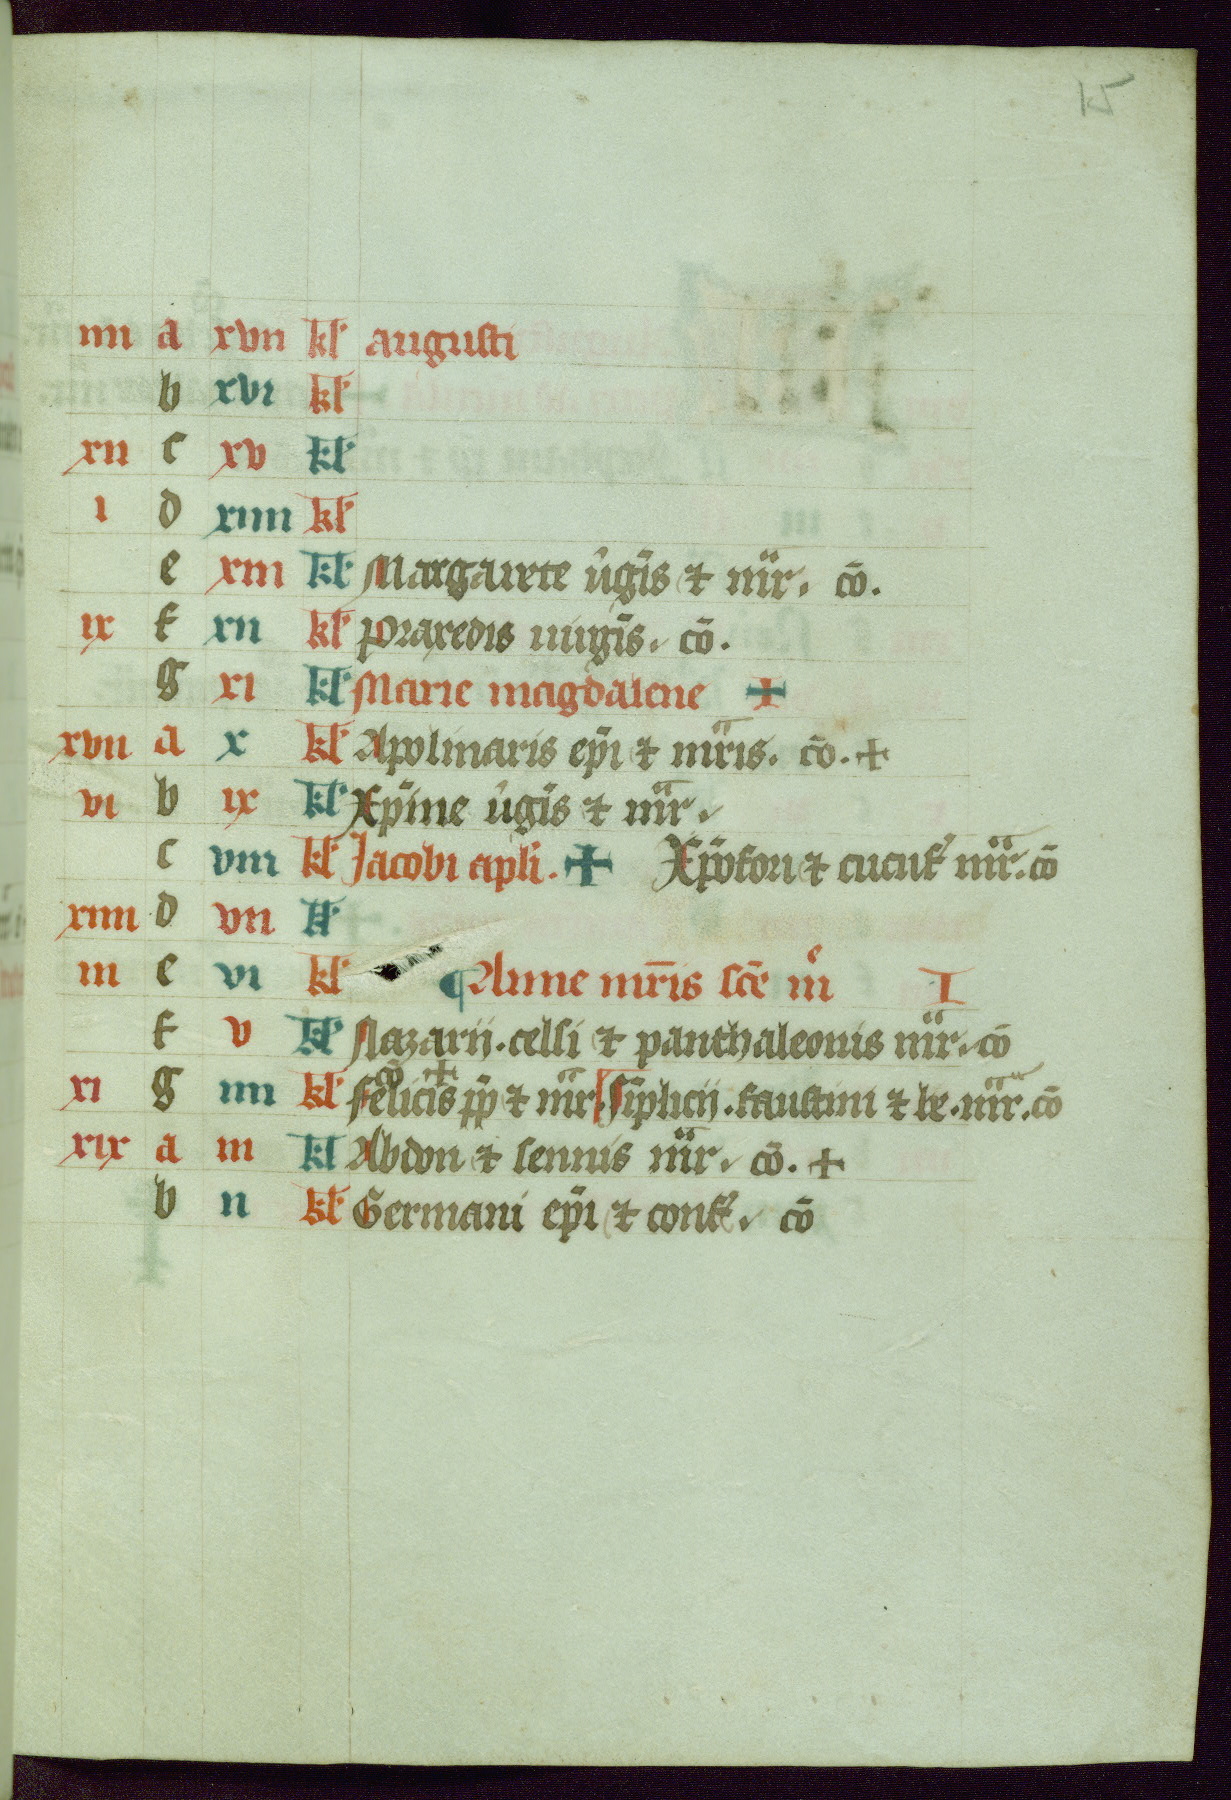 15
iiii a xvii kl augusti
b xvi kl
xii c xv kl
i d xiiii kl
e xiii kl Margarete v̄gīs et m̄r. cō.
ix f xii kl praxedis uirgīs. cō.
g xi kl Marie magdalene +
xvii a x kl Apolinaris ep̄i et m̄ris. cō. +
vi b ix kl Xp̄ine v̄gīs et m̄r.
c viii kl Jacobi apl̄i. + Xp̄ofori et cucuf' m̄r. cō
xiiii d vii kl
iii e vi kl ¶ Anne mr̄is scē m̄ I
f v kl Nazarii. celsi et panthaleonis m̄r. cō
cō +
xi g iiii kl felicis pp̄ et m̄r Sīplicii. faustini et be. m̄r. cō
xix a iii kl Abdon et sennis m̄r. cō. +
b ii kl Germani ep̄i et conf'. cō